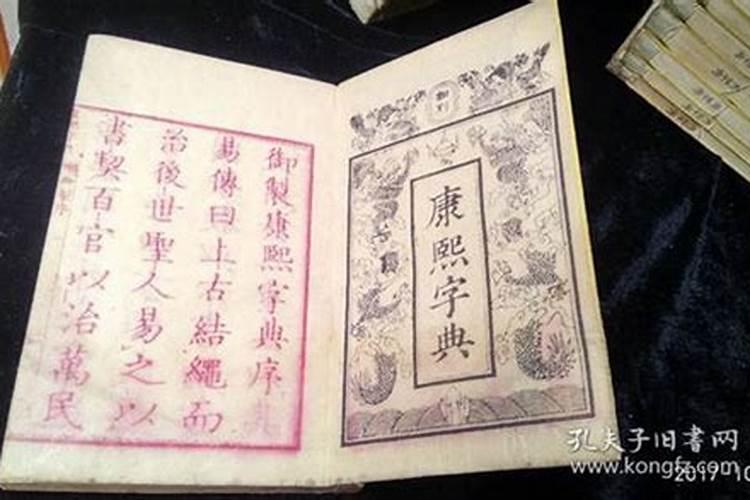 康熙字典
御製康熙字典序
易傳曰上古結繩而
治後世聖人易之以
書契百官以治萬民
孔夫子旧书网
www.kongfz.com